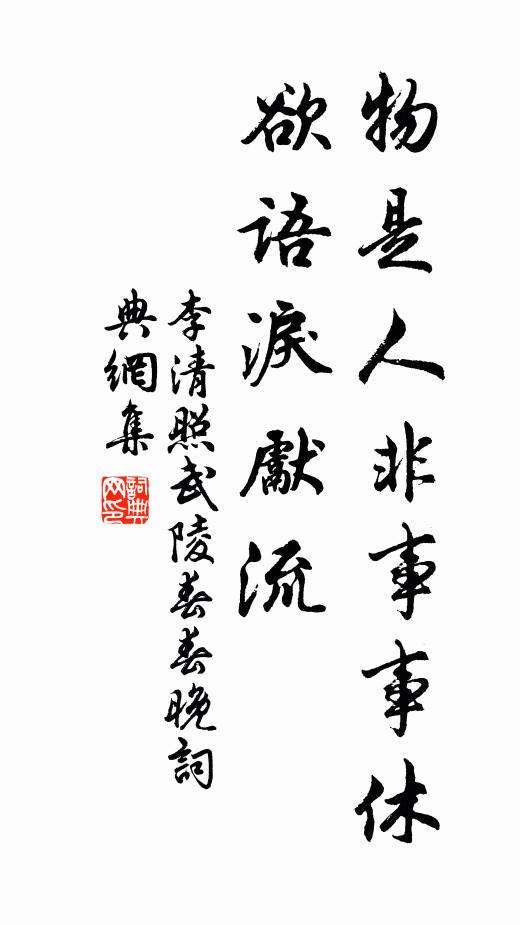 物是人非事事休
欲語淚獻流
李清照武陵春春晚詞
典網集
詞典网印